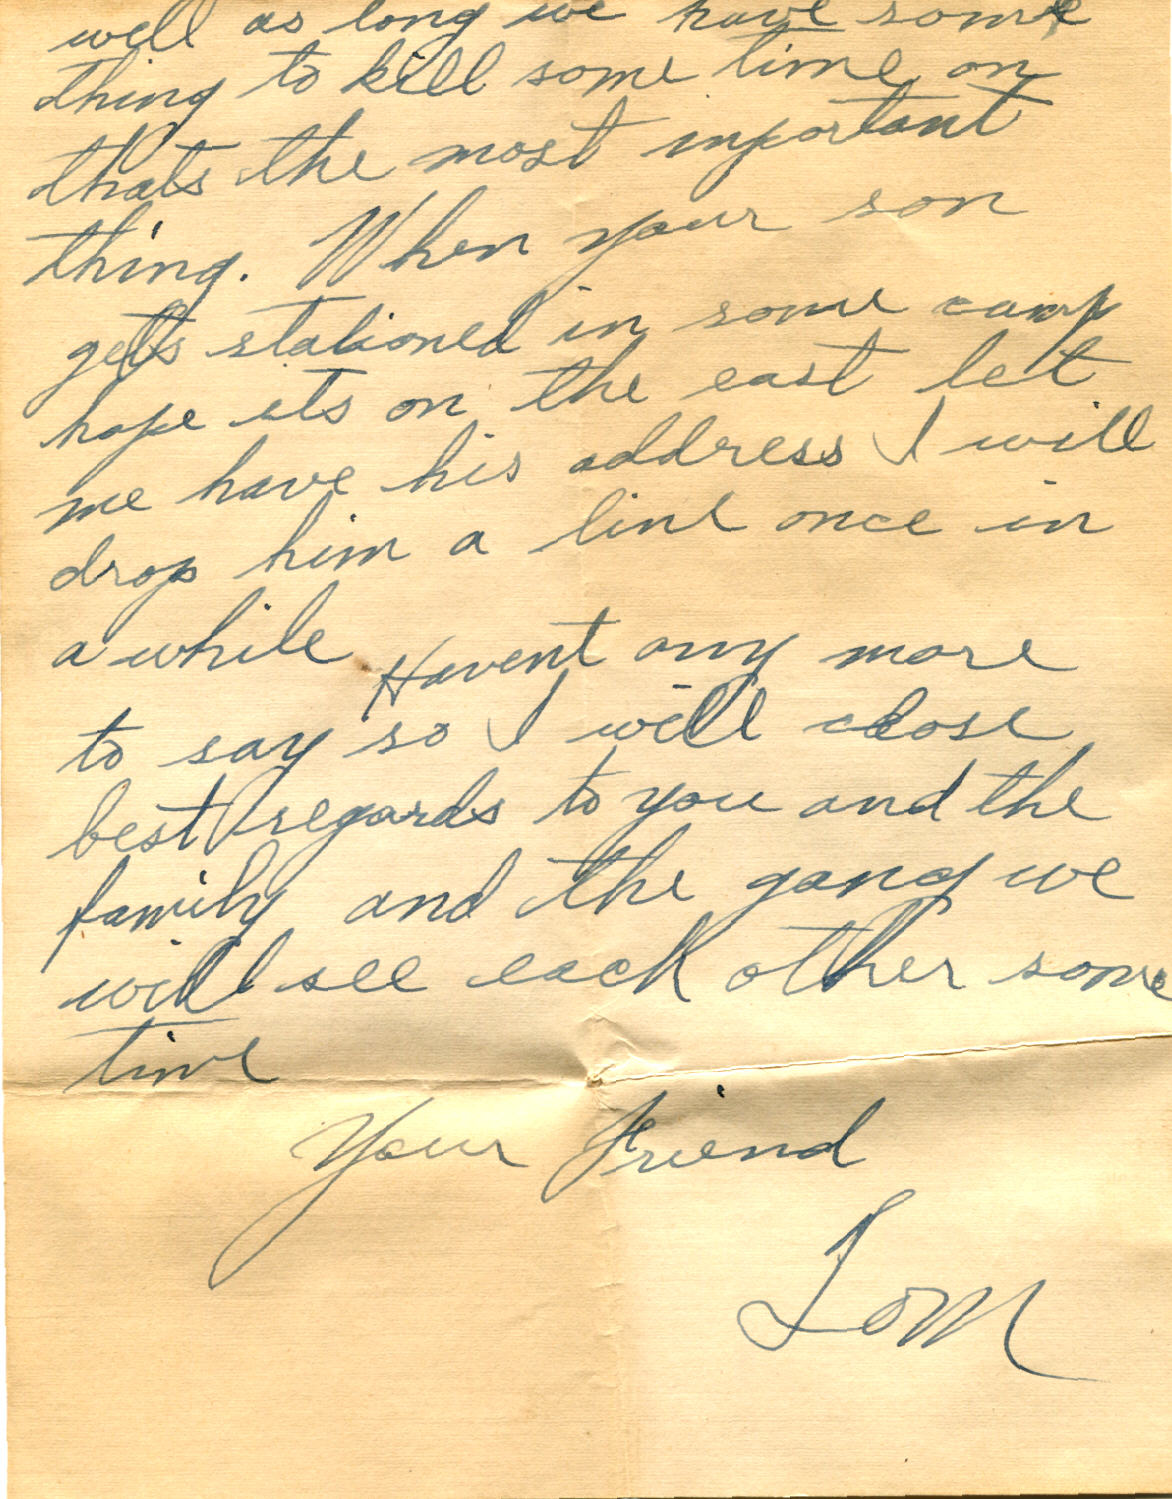 well as long we have some
thing to kill some time on
thats the most inportant
thing. When your son
gets stationed in some camp
hope its on the east let
me have his address I will
drop him a line once in
a while Havent any more
to say so I will close
best regards to you and the
family and the gang we
will see each other some
time
Your Friend
Tom